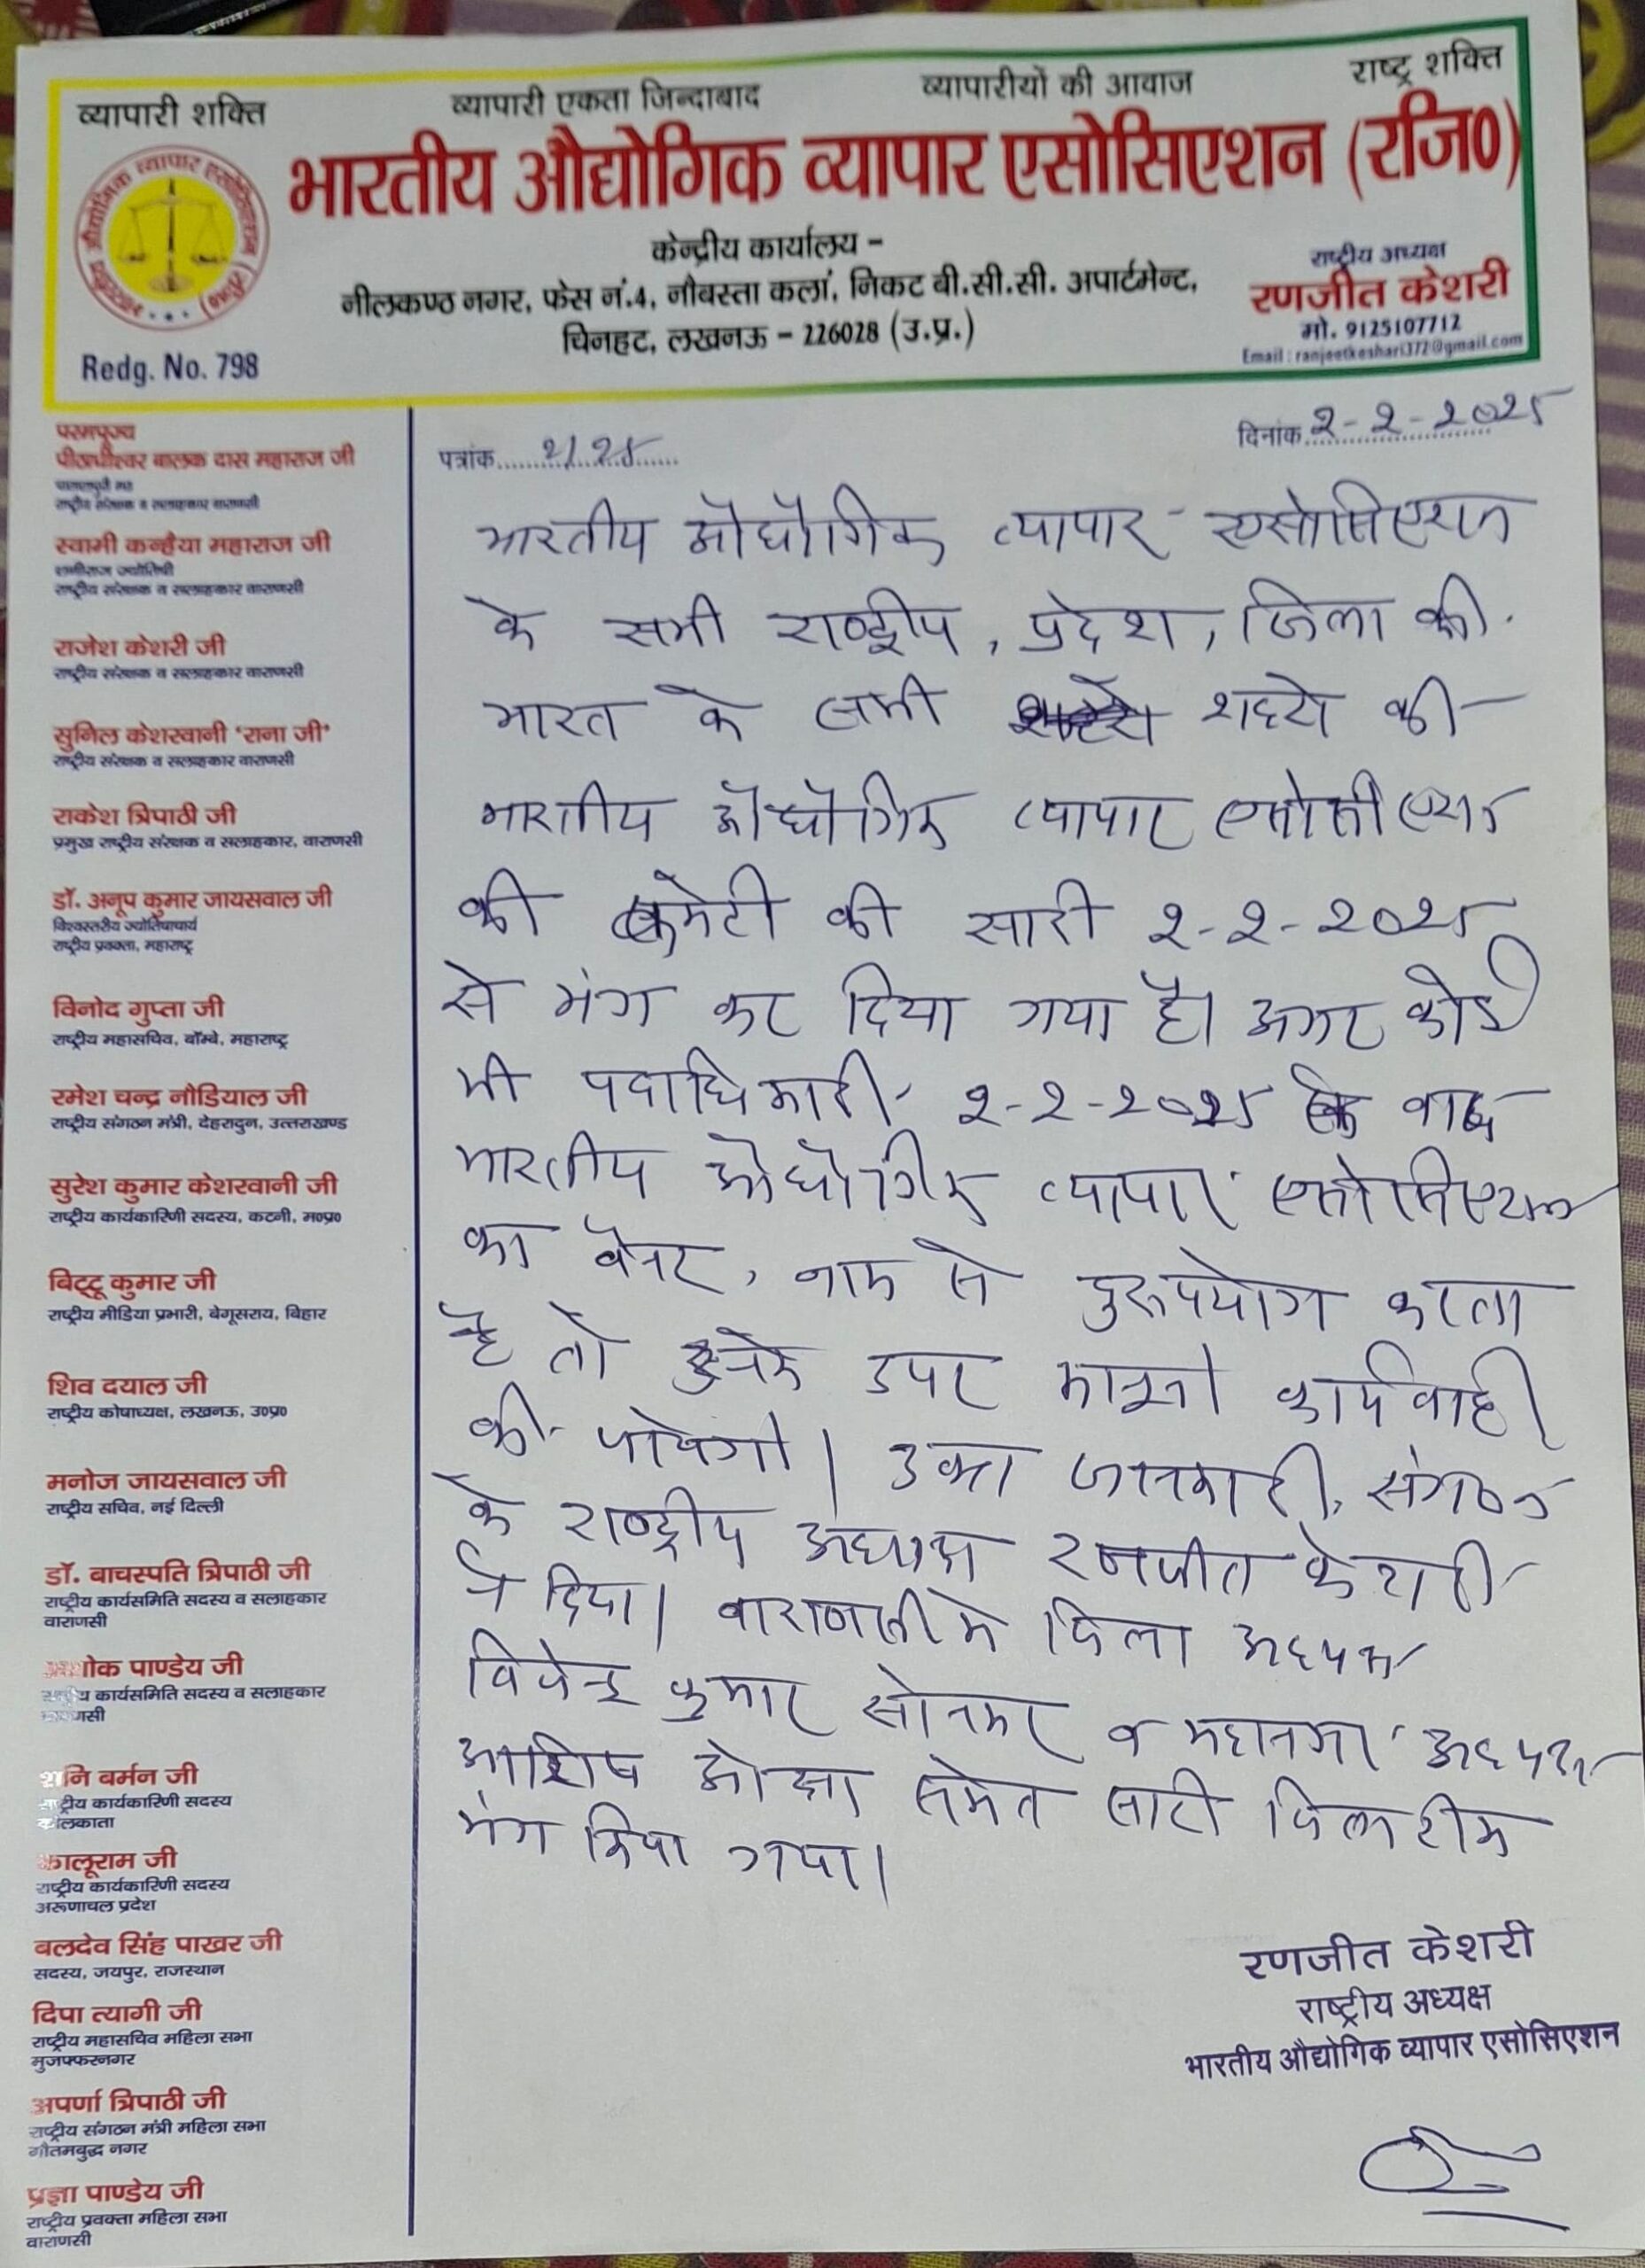 व्यापारी शक्ति व्यापारी एकता जिन्दाबाद व्यापारीयों की आवाज राष्ट्र शक्ति
भारतीय औद्योगिक व्यापार एसोसिएशन (रजि०)
केन्द्रीय कार्यालय –
नीलकण्ठ नगर, फेस नं.4, नौबस्ता कलां, निकट बी.सी.सी. अपार्टमेन्ट,
चिनहट, लखनऊ – 226028 (उ.प्र.)
राष्ट्रीय अध्यक्ष
रणजीत केशरी
मो. 9125107712
Email : ranjeetkeshari372@gmail.com
Redg. No. 798
परमपूज्य
पीठाधीश्वर बालक दास महाराज जी
राष्ट्रीय संरक्षक व सलाहकार वाराणसी
स्वामी कन्हैया महाराज जी
राष्ट्रीय संरक्षक व सलाहकार वाराणसी
राजेश केशरी जी
राष्ट्रीय संरक्षक व सलाहकार वाराणसी
सुनिल केशरवानी 'राना जी'
राष्ट्रीय संरक्षक व सलाहकार वाराणसी
राकेश त्रिपाठी जी
प्रमुख राष्ट्रीय संरक्षक व सलाहकार, वाराणसी
डॉ. अनूप कुमार जायसवाल जी
विश्वस्तरीय ज्योतिषाचार्य
राष्ट्रीय प्रवक्ता, महाराष्ट्र
विनोद गुप्ता जी
राष्ट्रीय महासचिव, बॉम्बे, महाराष्ट्र
रमेश चन्द्र नौडियाल जी
राष्ट्रीय संगठन मंत्री, देहरादुन, उत्तराखण्ड
सुरेश कुमार केशरवानी जी
राष्ट्रीय कार्यकारिणी सदस्य, कटनी, म०प्र०
बिट्टू कुमार जी
राष्ट्रीय मीडिया प्रभारी, बेगूसराय, बिहार
शिव दयाल जी
राष्ट्रीय कोषाध्यक्ष, लखनऊ, उ०प्र०
मनोज जायसवाल जी
राष्ट्रीय सचिव, नई दिल्ली
डॉ. बाचस्पति त्रिपाठी जी
राष्ट्रीय कार्यसमिति सदस्य व सलाहकार
वाराणसी
पाण्डेय जी
कार्यसमिति सदस्य व सलाहकार
बर्मन जी
कार्यकारिणी सदस्य
कालूराम जी
राष्ट्रीय कार्यकारिणी सदस्य
अरूणाचल प्रदेश
बलदेव सिंह पाखर जी
सदस्य, जयपुर, राजस्थान
दिपा त्यागी जी
राष्ट्रीय महासचिव महिला सभा
मुजफ्फरनगर
अपर्णा त्रिपाठी जी
राष्ट्रीय संगठन मंत्री महिला सभा
गौतमबुद्ध नगर
प्रज्ञा पाण्डेय जी
राष्ट्रीय प्रवक्ता महिला सभा
वाराणसी
पत्रांक 2/25 दिनांक 2-2-2025
भारतीय औद्योगिक व्यापार एसोसिएशन
के सभी राष्ट्रीय, प्रदेश, जिला की
भारत के सभी की
भारतीय औद्योगिक व्यापार एसोसीएशन
की कमेटी की सारी 2-2-2025
से भंग कर दिया गया है। अगर कोई
भी पदाधिकारी 2-2-2025 के बाद
भारतीय औद्योगिक व्यापार एसोसिएशन
का बैनर, नाम से दुरूपयोग करता
है तो उनके उपर कानूनी कार्यवाही
की जायेगी। उक्त जानकारी, संगठन
के राष्ट्रीय अध्यक्ष रणजीत केशरी
ने दिया। वाराणसी के जिला अध्यक्ष
कुमार सोनकर व महानगर अध्यक्ष
आशिष ओझा समेत सारी जिला टीम
भंग किया गया।
रणजीत केशरी
राष्ट्रीय अध्यक्ष
भारतीय औद्योगिक व्यापार एसोसिएशन